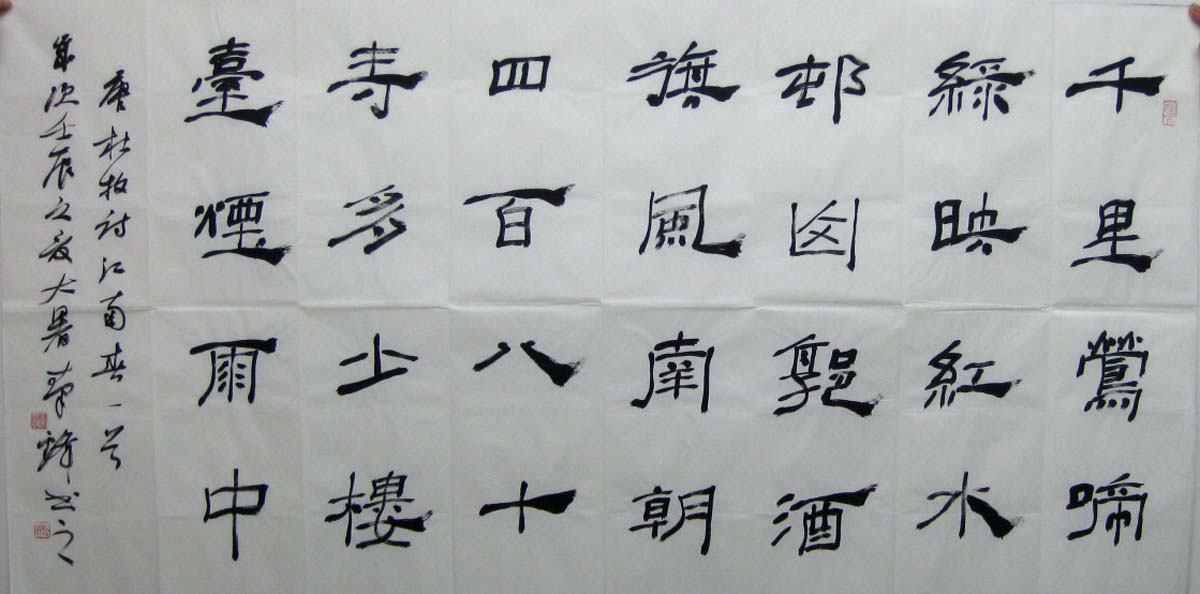 千里鶯啼
綠映紅水
邨山郭酒
旗風南朝
四百八十
寺多少樓
臺煙雨中
唐杜牧詩江南春一首
歲次壬辰之夏大暑華鋒書之